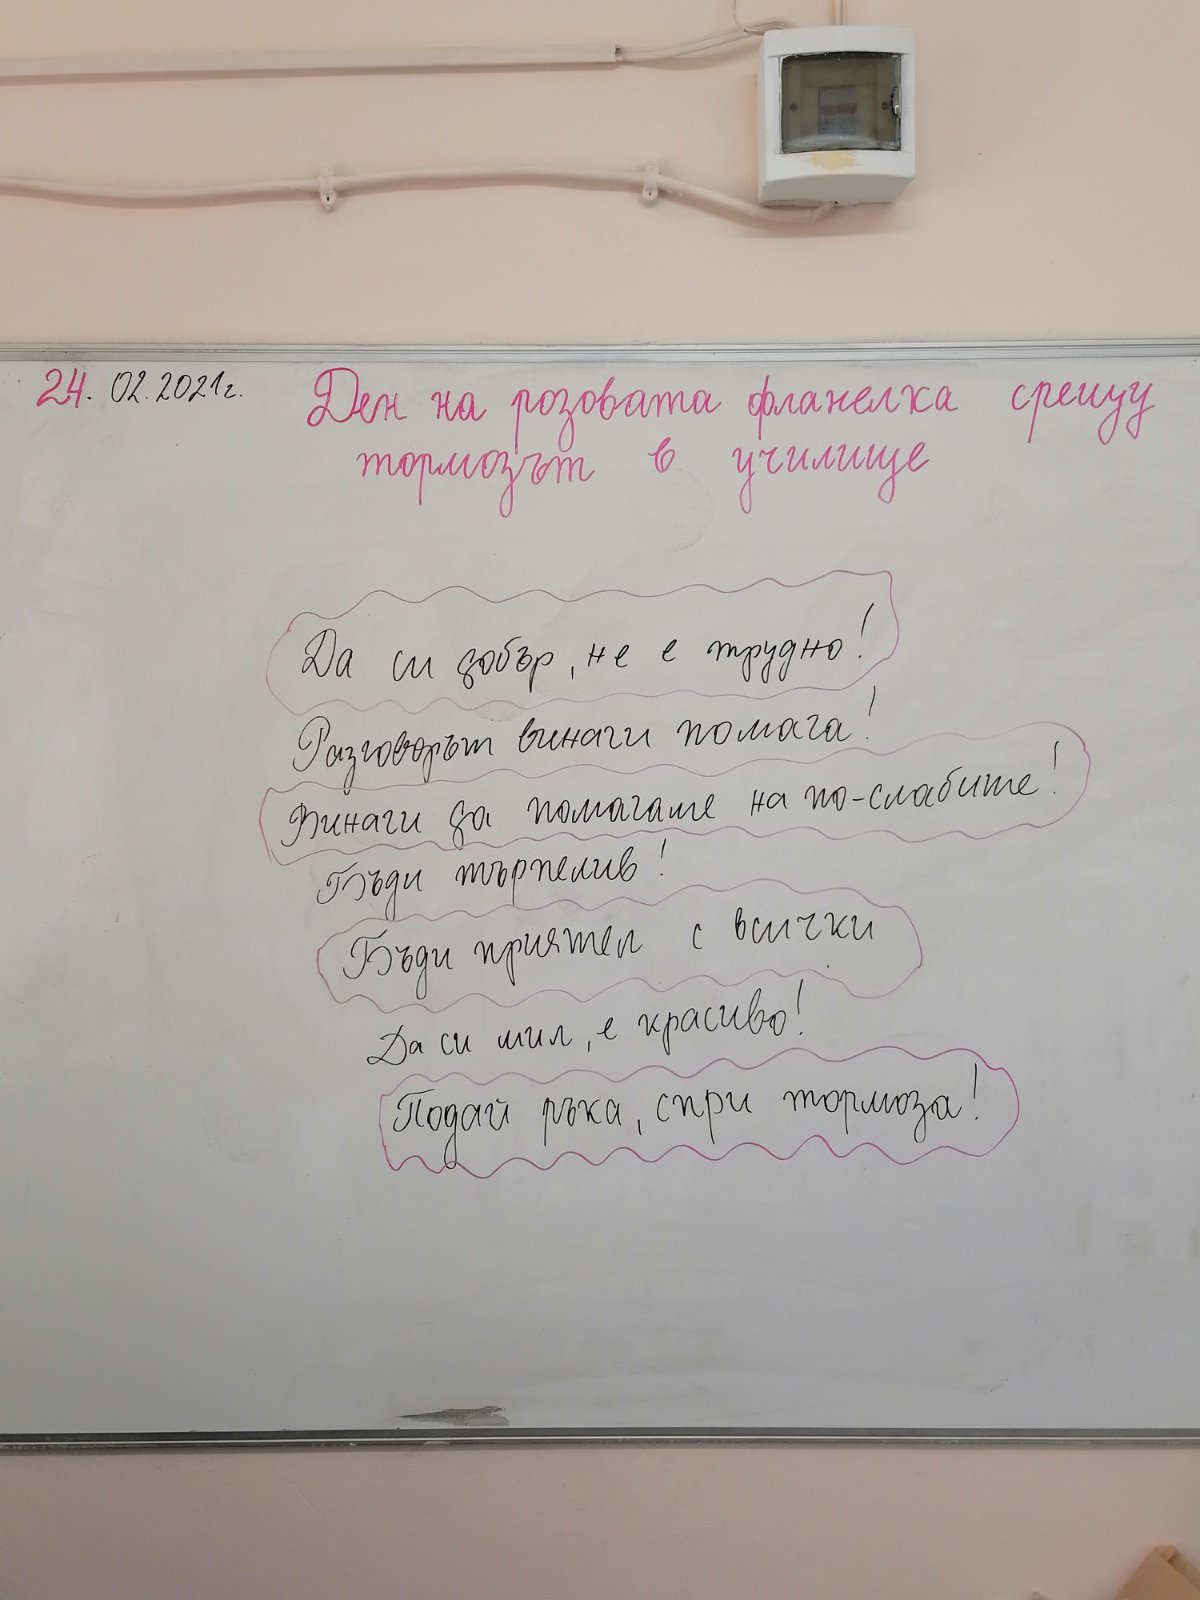 24.02.2021г.
Ден на розовата фланелка срещу
тормозът в училище
Да си добър, не е трудно!
Разговорът винаги помага!
Винаги да помагаме на по-слабите!
Бъди търпелив!
Бъди приятел с всички
Да си мил, е красиво!
Подай ръка, спри тормоза!